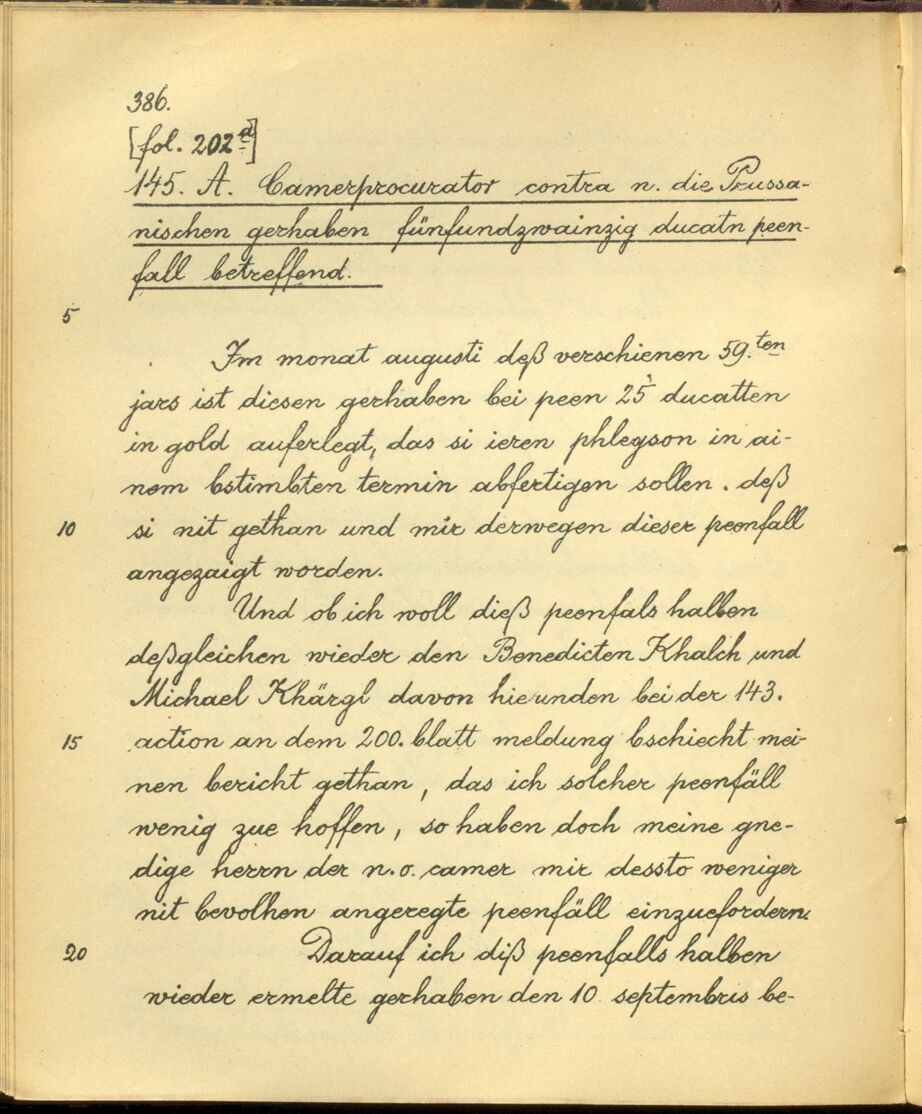 386.
[fol. 202d]
145. A. Camerprocurator contra n. die Prussa-
nischen gerhaben fünfundzwainzig ducatn peen-
fall betreffend.
5
Im monat augusti deß verschienen 59.ten
jars ist diesen gerhaben bei peen 25 ducatten
in gold auferlegt, das si ieren phlegson in ai-
nem bstimbten termin abfertigen sollen. deß
10 si nit gethan und mir derwegen dieser peenfall
angezaigt worden.
Und ob ich woll dieß peenfals halben
deßgleichen wieder den Benedicten Khalch und
Michael Khärgl davon hieunden bei der 143.
15 action an dem 200. blatt meldung bschiecht mei-
nen bericht gethan, das ich solcher peenfäll
wenig zue hoffen, so haben doch meine gne-
dige herrn der n.o. camer mir dessto weniger
nit bevolhen angeregte peenfäll einzuefordern.
20 Darauf ich diß peenfalls halben
wieder ermelte gerhaben den 10 septembris be-